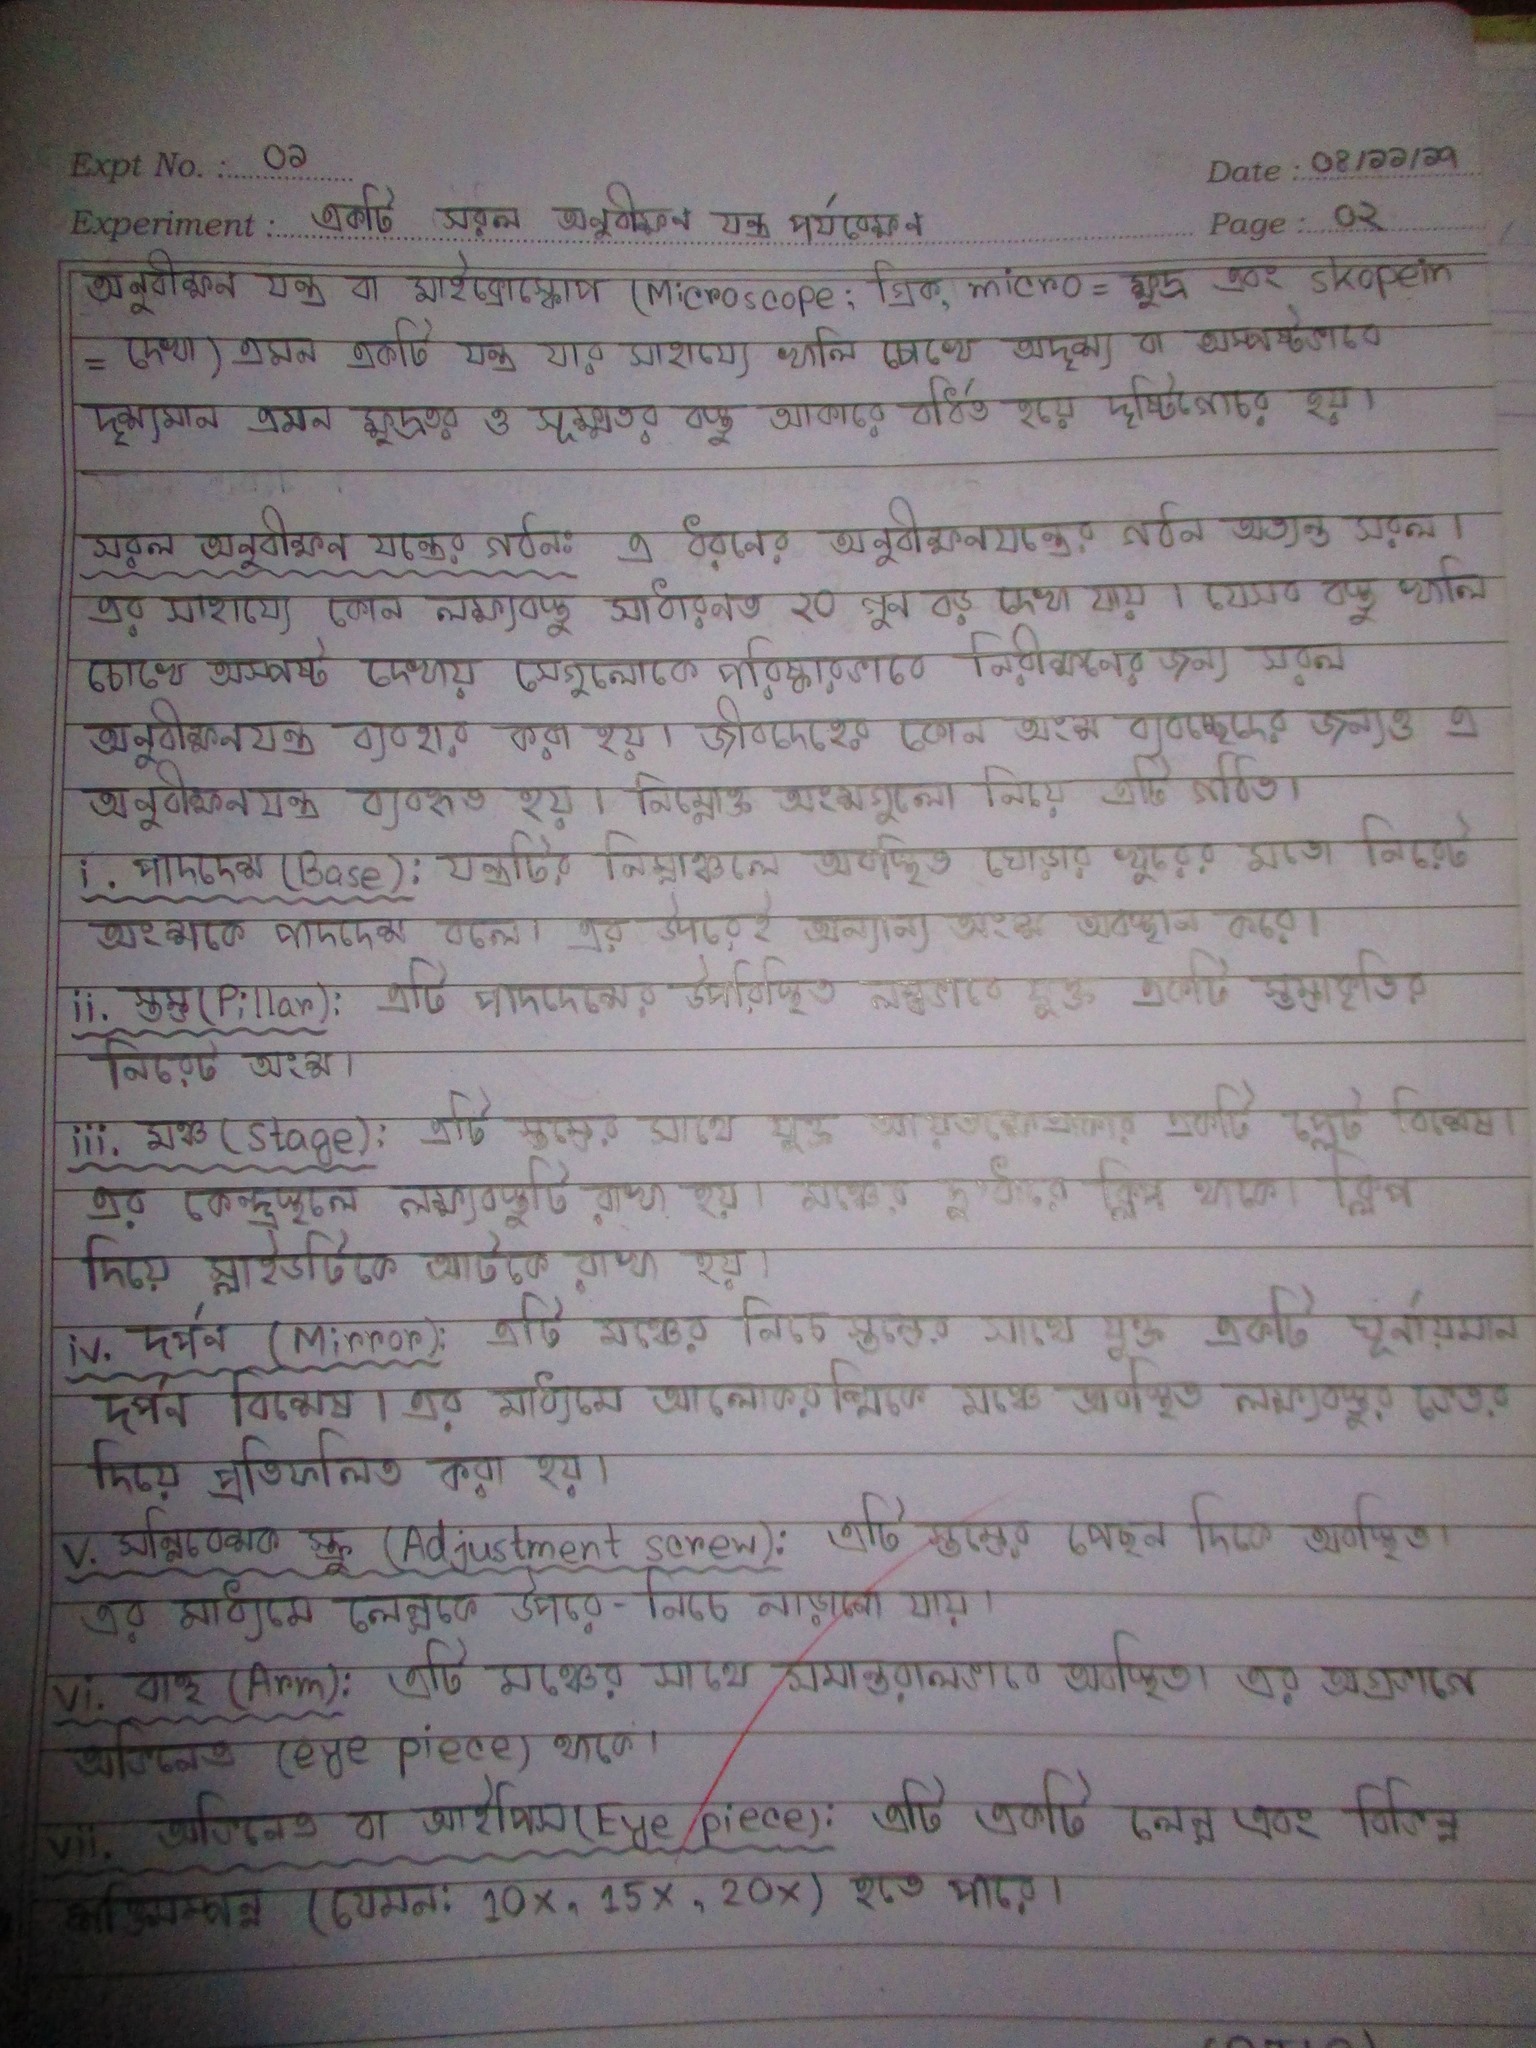 Expt No. : ০১
Date : ০৪/১১/১৭
Experiment : একটি সরল অনুবীক্ষন যন্ত্র পর্যবেক্ষন
Page : ০২
অনুবীক্ষন যন্ত্র বা মাইক্রোস্কোপ (Microscope; গ্রিক, micro = ক্ষুদ্র এবং skopein
= দেখা) এমন একটি যন্ত্র যার সাহায্যে খালি চোখে অদৃশ্য বা অস্পষ্টভাবে
দৃশ্যমান এমন ক্ষুদ্রতর ও সূক্ষ্মতর বস্তু আকারে বর্ধিত হয়ে দৃষ্টিগোচরে হয়।
সরল অনুবীক্ষন যন্ত্রের গঠনঃ এ ধরনের অনুবীক্ষনযন্ত্রের গঠন অত্যন্ত সরল।
এর সাহায্যে কোন লক্ষ্যবস্তু সাধারনত ২০ গুন বড় দেখা যায়। যেসব বস্তু খালি
চোখে অস্পষ্ট দেখায় সেগুলোকে পরিষ্কারভাবে নিরীক্ষনের জন্য সরল
অনুবীক্ষনযন্ত্র ব্যবহার করা হয়। জীবদেহের কোন অংশ ব্যবচ্ছেদের জন্যও এ
অনুবীক্ষনযন্ত্র ব্যবহৃত হয়। নিম্নোক্ত অংশগুলো নিয়ে এটি গঠিত।
i. পাদদেশ (Base): যন্ত্রটির নিম্নাঞ্চলে অবস্থিত ঘোড়ার খুরের মতো নিরেট
অংশকে পাদদেশ বলে। এর উপরেই অন্যান্য অংশ অবস্থান করে।
ii. স্তম্ভ (Pillar): এটি পাদদেশের উপরিস্থিত লম্বভাবে যুক্ত একটি স্তম্ভাকৃতির
নিরেট অংশ।
iii. মঞ্চ (Stage): এটি স্তম্ভের সাথে যুক্ত আয়তক্ষেত্রাকার একটি প্লেট বিশেষ।
এর কেন্দ্রস্থলে লক্ষ্যবস্তুটি রাখা হয়। মঞ্চের দু'ধারে ক্লিপ থাকে। ক্লিপ
দিয়ে স্লাইডটিকে আটকে রাখা হয়।
iv. দর্পন (Mirror): এটি মঞ্চের নিচে স্তম্ভের সাথে যুক্ত একটি ঘূর্নায়মান
দর্পন বিশেষ। এর মাধ্যমে আলোকরশ্মিকে মঞ্চে অবস্থিত লক্ষ্যবস্তুর ভেতর
দিয়ে প্রতিফলিত করা হয়।
v. সন্নিবেশক স্ক্রু (Adjustment screw): এটি স্তম্ভের পেছন দিকে অবস্থিত।
এর মাধ্যমে লেন্সকে উপরে-নিচে নাড়ানো যায়।
vi. বাহু (Arm): এটি মঞ্চের সাথে সমান্তরালভাবে অবস্থিত। এর অগ্রভাগে
অভিনেত্র (eye piece) থাকে।
vii. অভিনেত্র বা আইপিস (Eye piece): এটি একটি লেন্স এবং বিভিন্ন
শক্তিসম্পন্ন (যেমন: 10x, 15x, 20x) হতে পারে।